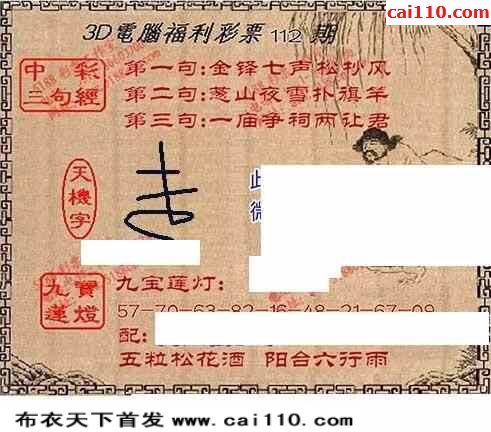 cai110.com
3D電腦福利彩票 112 期
中彩三句經
第一句:金铎七声松抄风
第二句:葱山夜雪扑旗竿
第三句:一庙争祠两让君
天機字
九寶蓮燈
九宝莲灯:
57-70-63-82-16-48-21-67-09
配:
五粒松花酒 阳台六行雨
布衣天下首发 www.cai110.com